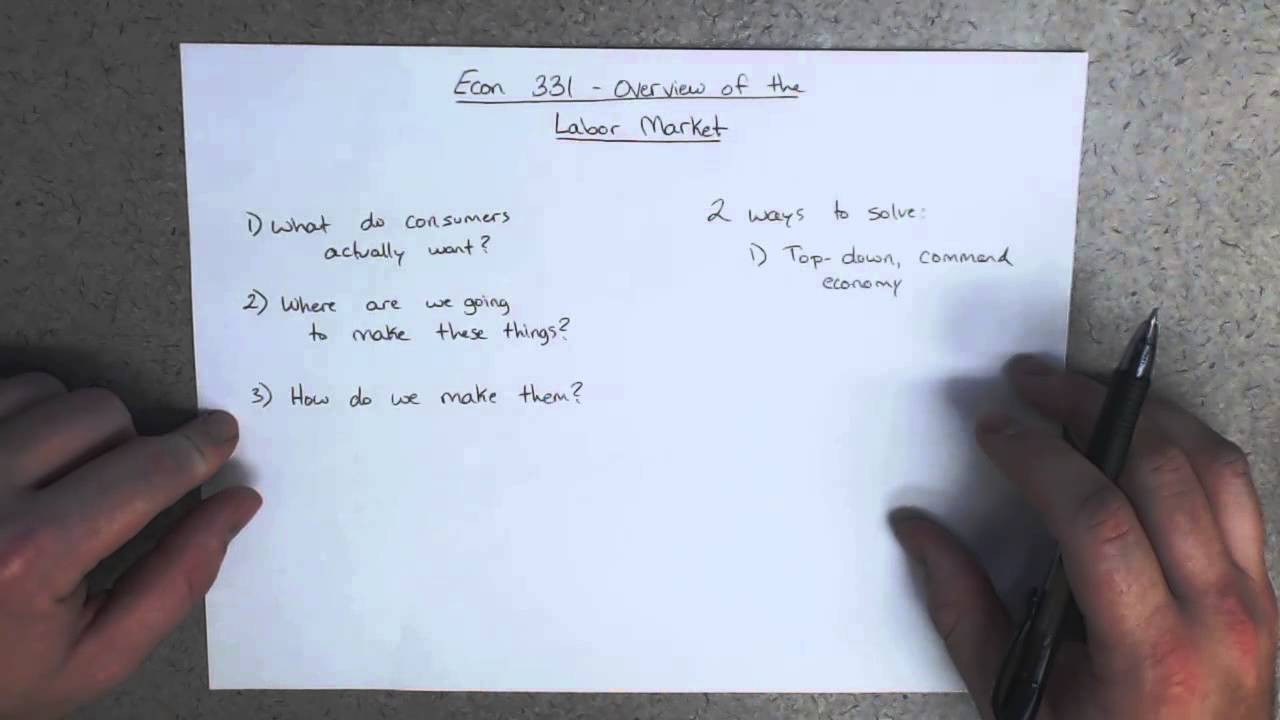 Econ 331 - Overview of the
Labor Market
1) What do consumers
actually want?
2) Where are we going
to make these things?
3) How do we make them?
2 ways to solve:
1) Top-down, command
economy